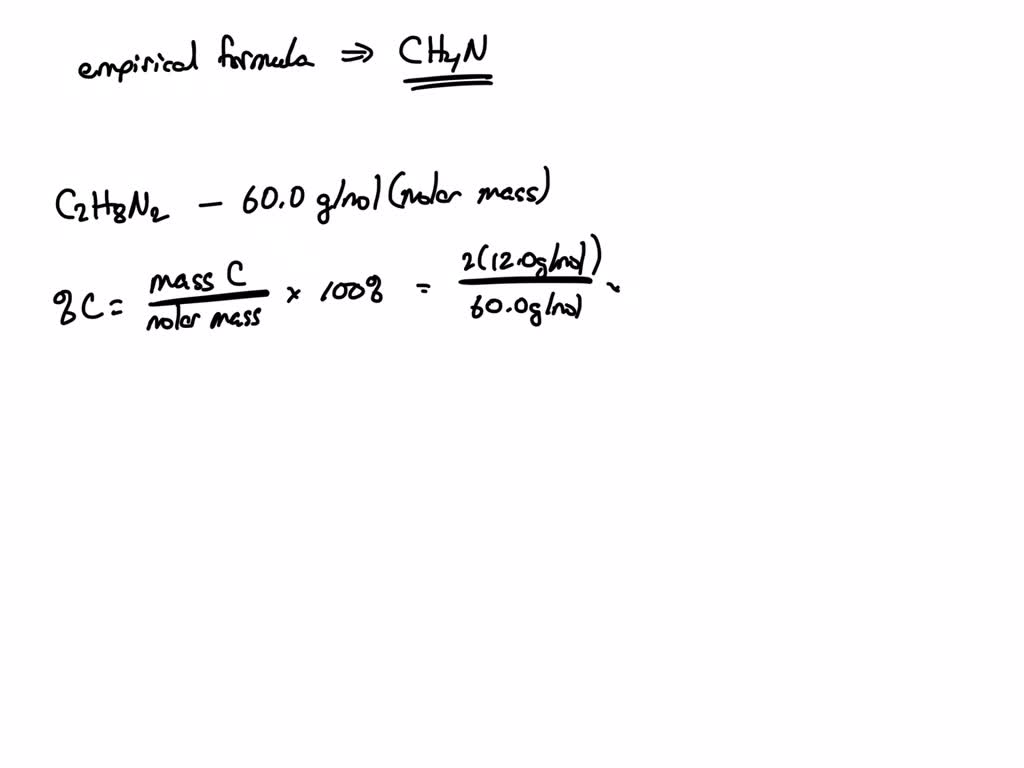 empirical formula ⇒ CH4N
C2H8N2 – 60.0 g/mol (molar mass)
%C = mass C / molar mass × 100% = 2(12.0g/mol) / 60.0g/mol ×